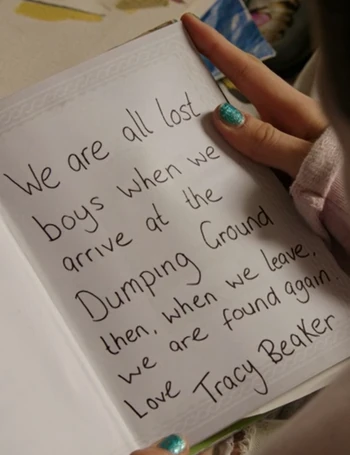 We are all lost
boys when we
arrive at the
Dumping Ground
then, when we leave,
we are found again.
Love Tracy Beaker